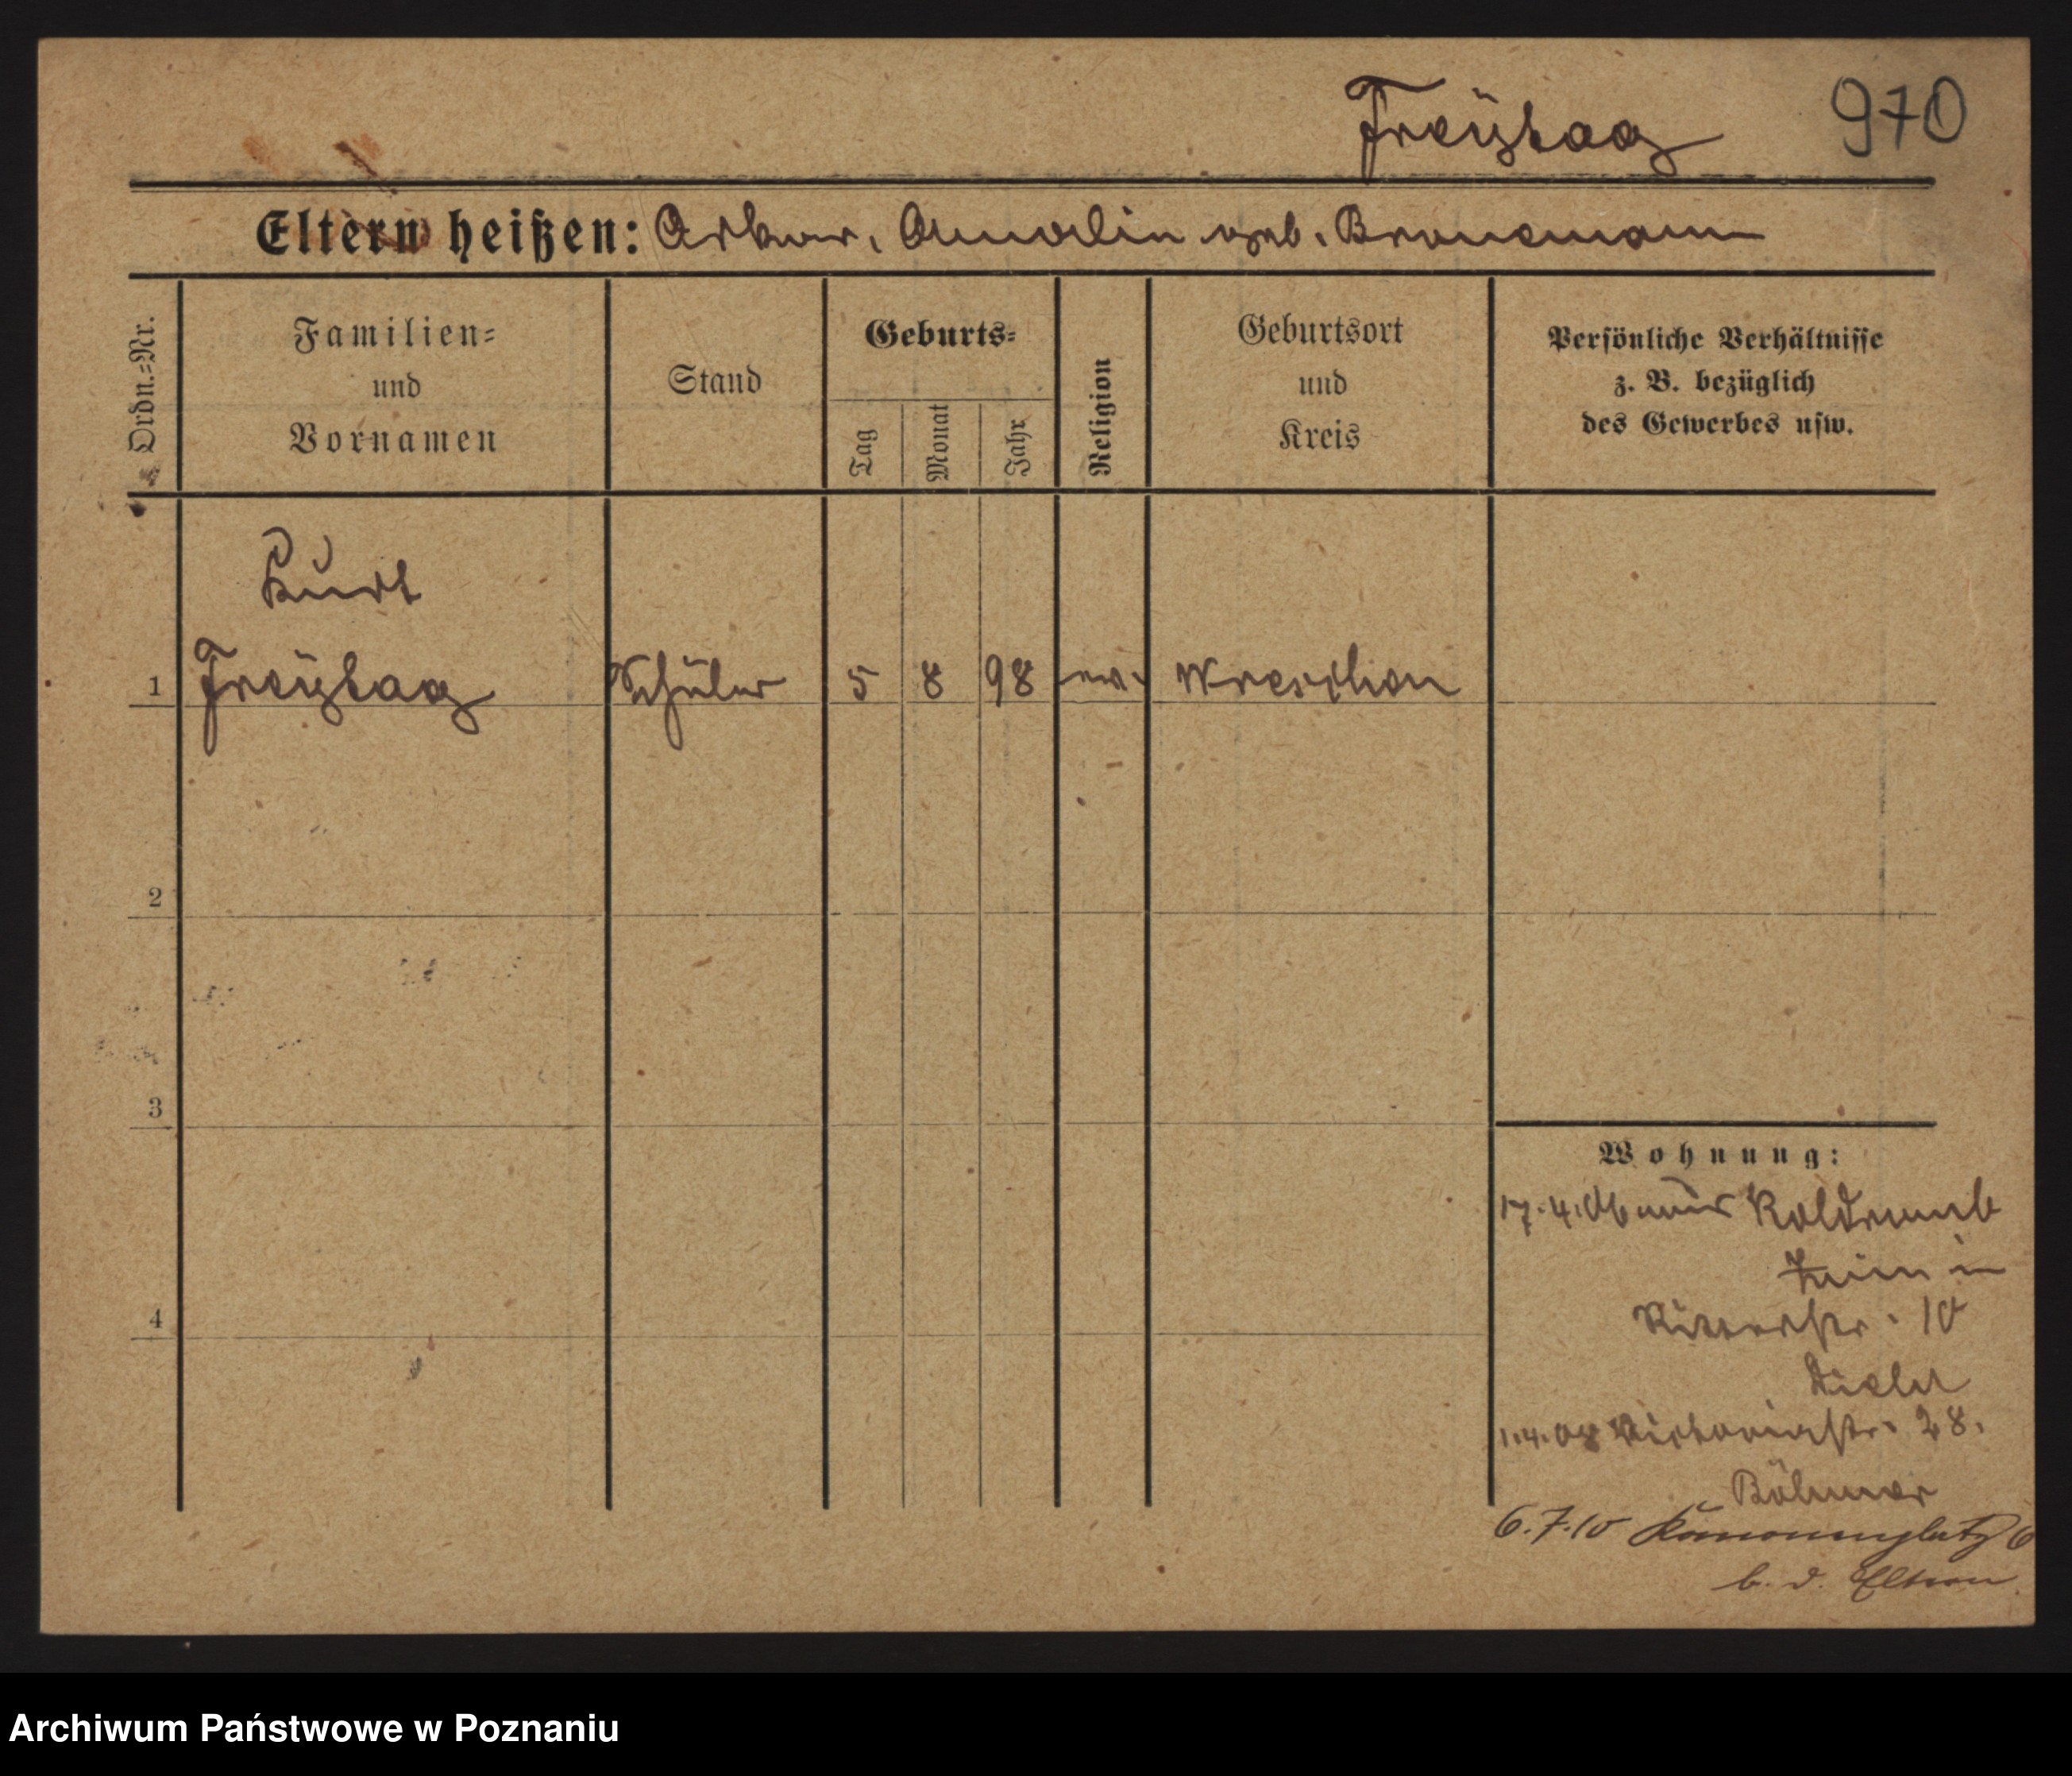 Freÿtag 970
Eltern heißen: Oskar, Amalie geb. Bronemann
Ordn.=Nr.
Familien=
und
Vornamen
Stand
Geburts=
Tag
Monat
Jahr
Religion
Geburtsort
und
Kreis
Persönliche Verhältnisse
z. B. bezüglich
des Gewerbes usw.
Kurt
1 Freÿtag Schüler 5 8 98 ev. Wreschen
2
3
4
Wohnung:
17.4.06 aus Koldromb
in
Ritterstr. 10
1.4.08 Victoriastr. 28.
Böhmer
6.7.10 Kanonenplatz 6
b. d. Eltern
Archiwum Państwowe w Poznaniu